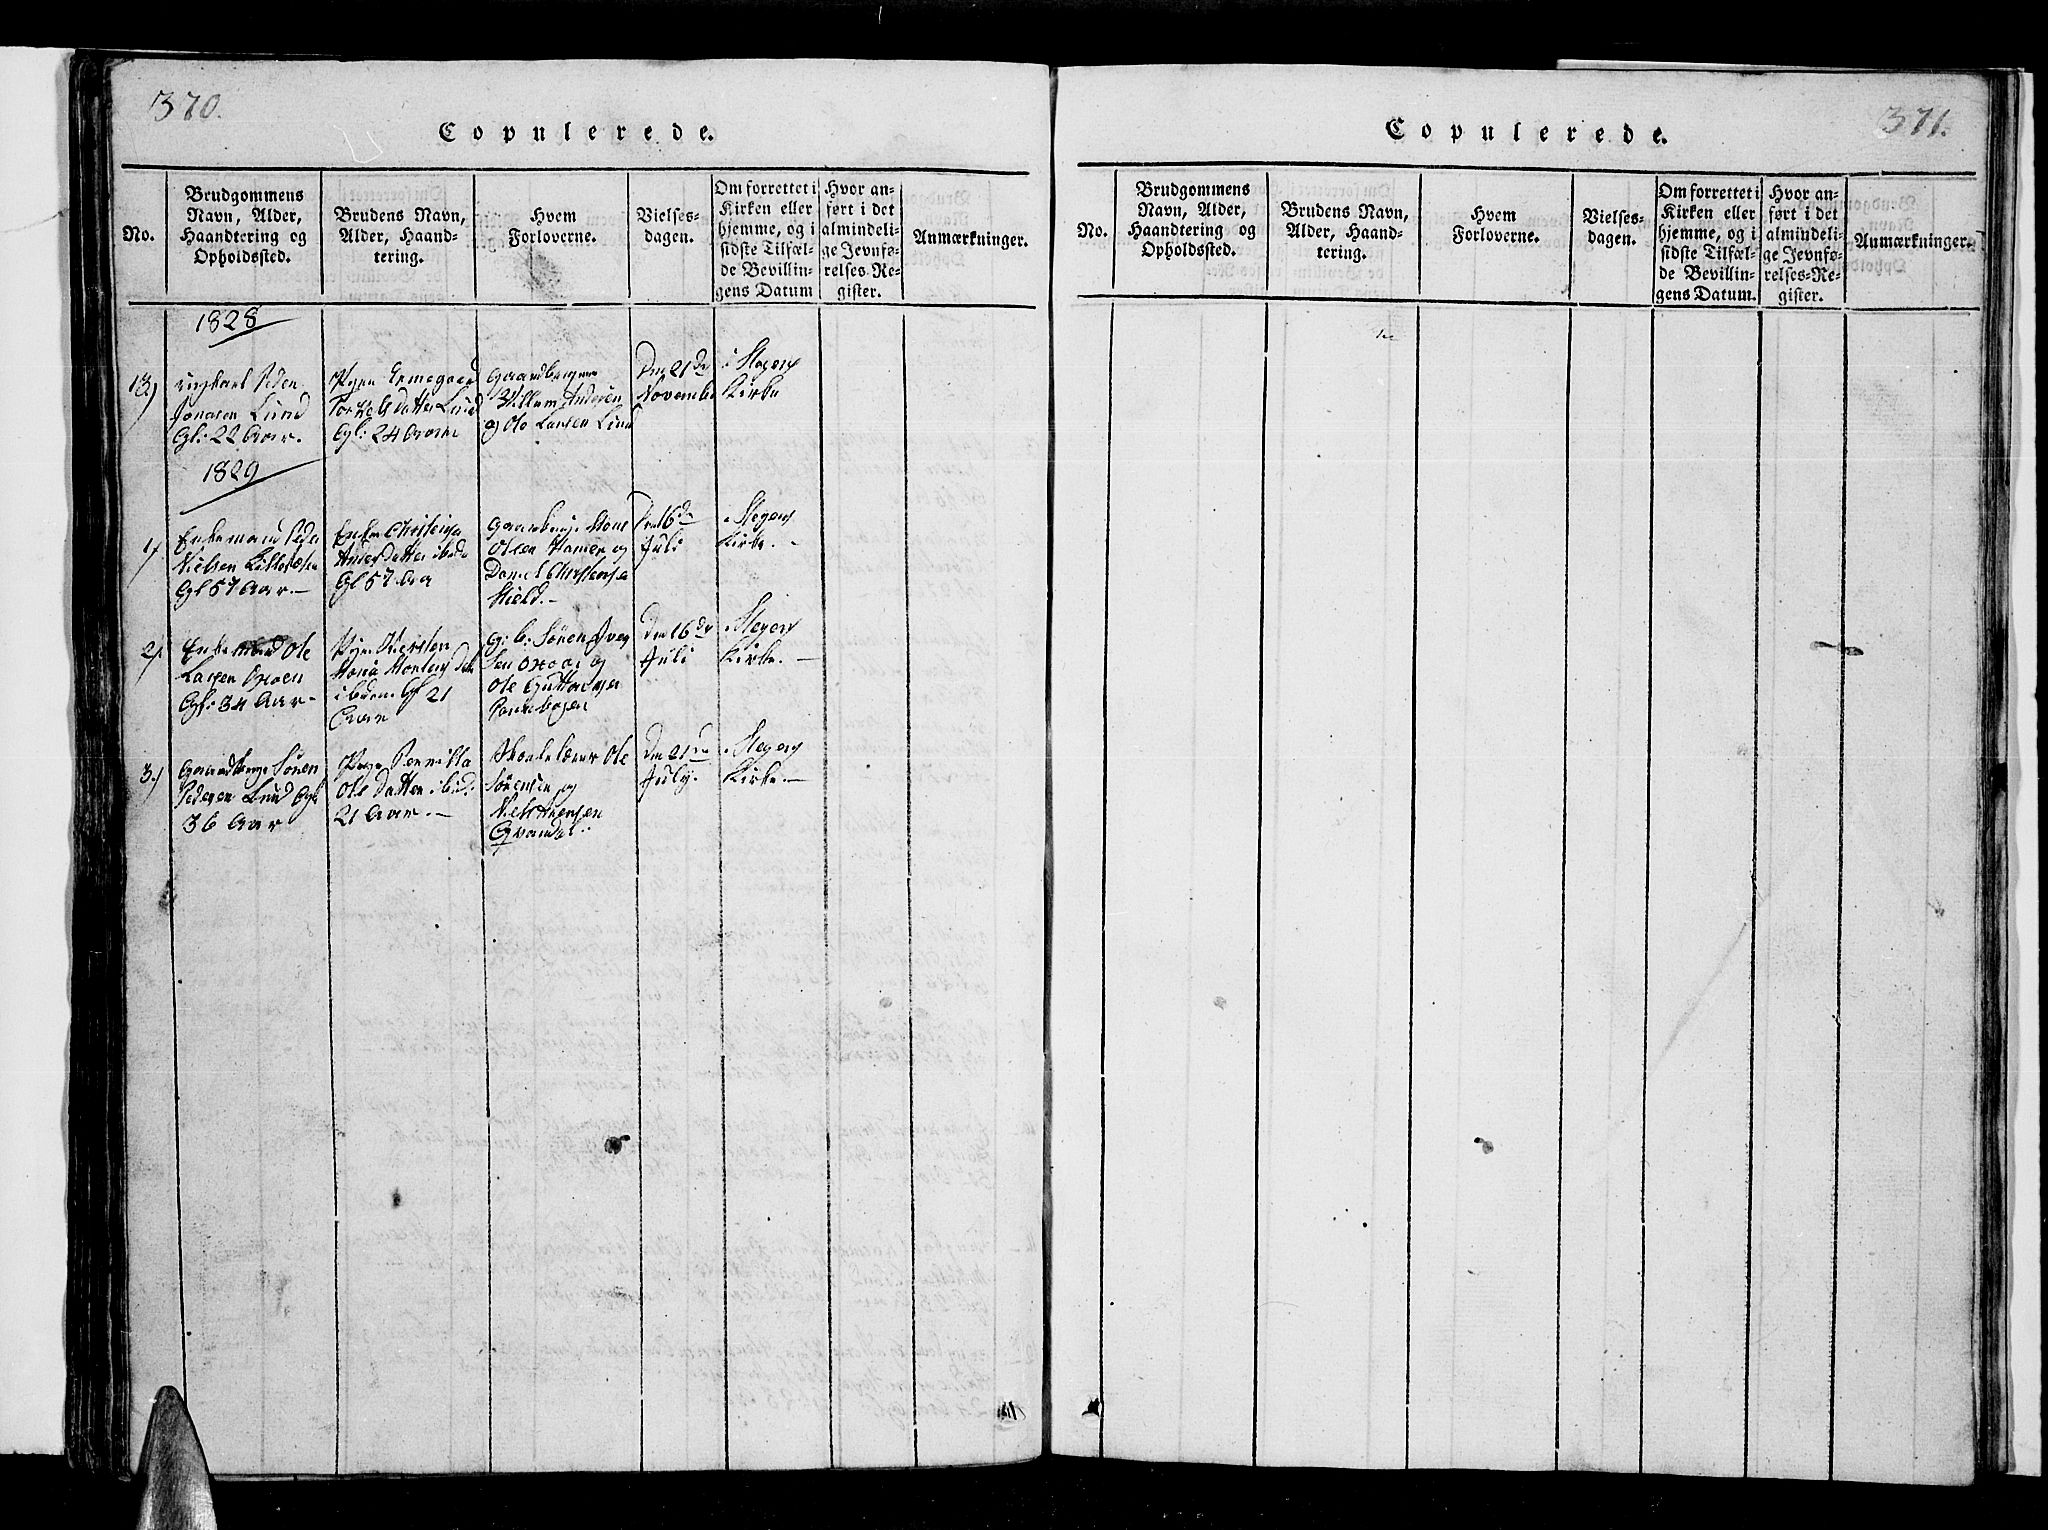 370.
Copulerede.
No.
Brudgommens
Navn, Alder,
Haandtering og
Opholdssted.
Brudens Navn,
Alder, Haand-
tering.
Hvem
Forloverne.
Vielses-
dagen.
Om forrettet i
Kirken eller
hjemme, og i
sidste Tilfæl-
de Bevillin-
gens Datum
Hvor an-
ført i det
almindeli-
ge Jevnfø-
relses-Re-
gister.
Anmærkninger.
1828
13)
ungkarl Peder
Jonasen Lund
Gl: 22 Aar.
Pigen
Datter Lund
Gl: 24 Aar
Gaardbruger
Villum Andersen
og Ole Larsen Lund
Den 21de
November
i Stegens
Kirke
1829
1)
Enkemand Peder
Nielsen
Gl 57 Aar.
Enken Christense
Anders Datter ibid
Gl 57 Aar
Gaardbruger Hans
Olsen Hamer og
Daniel Christensen
Skield.
Den 16de
Juli
i Stegens
Kirke.
2).
Enkemand Ole
Larsen
Gl: 34 Aar
Pigen Kiersten
Maria
ibiden. Gl 21
Aar
G: b: Sören Iver
sen og
Ole
Den 16de
Juli
i Stegens
Kirke.
3.)
Gaardbruger Sören
Pedersen Lund Gl:
36 Aar
Pige Pernilla
Ole Datter ibid:
21 Aar.
Skolelærer Ole
Sörensen og
Niels
Qvandal:
Den 21de
July.
i Stegens
Kirke.
371.
Copulerede.
No.
Brudgommens
Navn, Alder,
Haandtering og
Opholdssted.
Brudens Navn,
Alder, Haand-
tering.
Hvem
Forloverne.
Vielses-
dagen.
Om forrettet i
Kirken eller
hjemme, og i
sidste Tilfæl-
de Bevillin-
gens Datum.
Hvor an-
ført i det
almindeli-
ge Jevnfø-
relses-Re-
gister.
Anmærkninger.